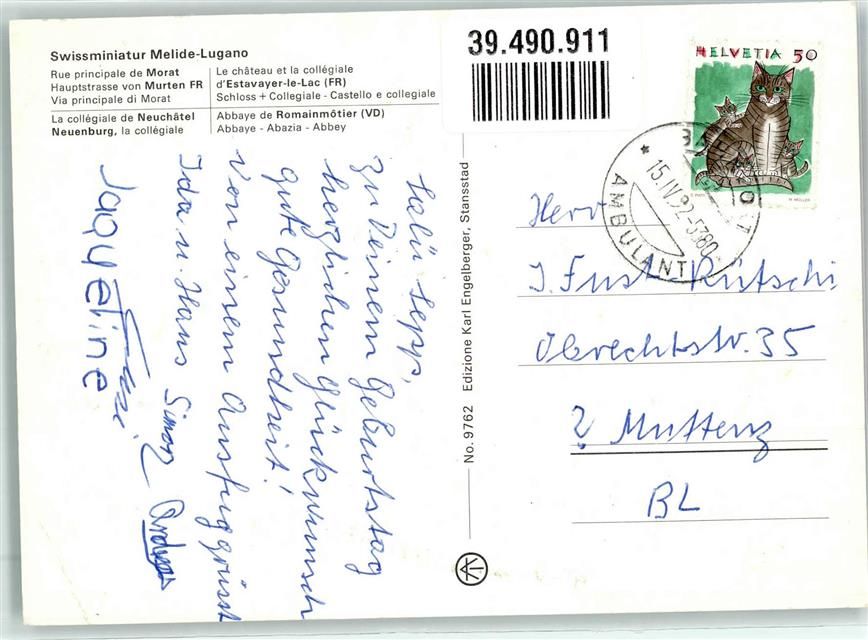 Swissminiatur Melide-Lugano
Rue principale de Morat
Hauptstrasse von Murten FR
Via principale di Morat
Le château et la collégiale
d'Estavayer-le-Lac (FR)
Schloss + Collegiale - Castello e collegiale
La collégiale de Neuchâtel
Neuenburg, la collégiale
Abbaye de Romainmôtier (VD)
Abbaye - Abazia - Abbey
39.490.911
HELVETIA 50
15.IV.92-5380
AMBULANT
No. 9762 Edizione Karl Engelberger, Stansstad
Salü Sepp,
zu Deinem Geburtstag
herzlichen Glückwunsch
gute Gesundheit!
Von einem Ausflug grüsst
Ida u. Hans Simon
Jaqueline
Herr
J. Fust-Rütschi
Obrechtstr. 35
? Muttenz
BL